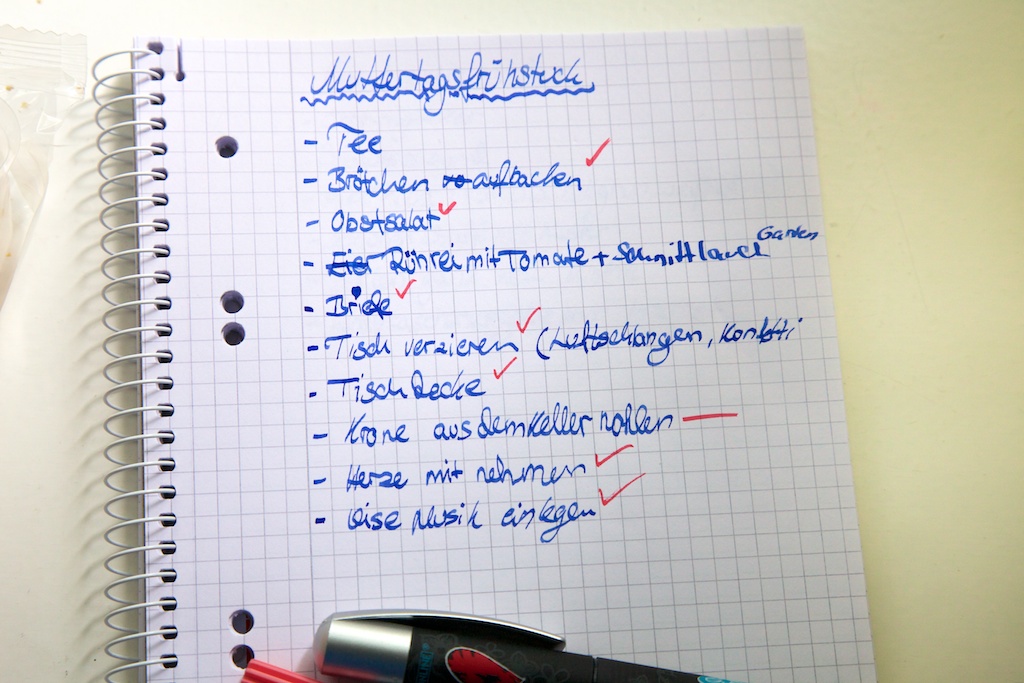 Muttertagsfrühstück
- Tee
- Brötchen aufbacken
- Obstsalat
- Eier Rührei mit Tomate + Schnittlauch Garten
- Briefe
- Tisch verzieren (Luftschlangen, Konfetti
- Tischdecke
- Krone aus dem Keller hohlen
- Herze mit nehmen
- leise Musik einlegen